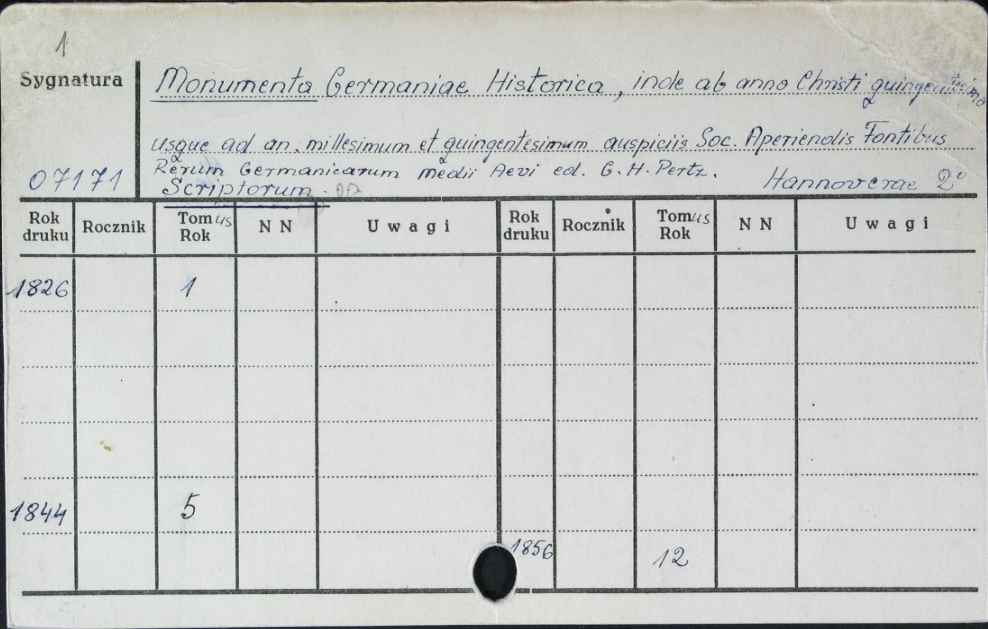 1
Sygnatura
Monumenta Germaniae Historica, inde ab anno Christi quingentesimo
usque ad an. millesimum et quingentesimum auspiciis Soc. Aperiendis Fontibus
Rerum Germanicarum medii Aevi ed. G. H. Pertz. Hannoverae 2°
07171 Scriptorum.
Rok druku Rocznik Tomus Rok N N Uwagi Rok druku Rocznik Tomus Rok N N Uwagi
1826 1
1844 5
1856 12